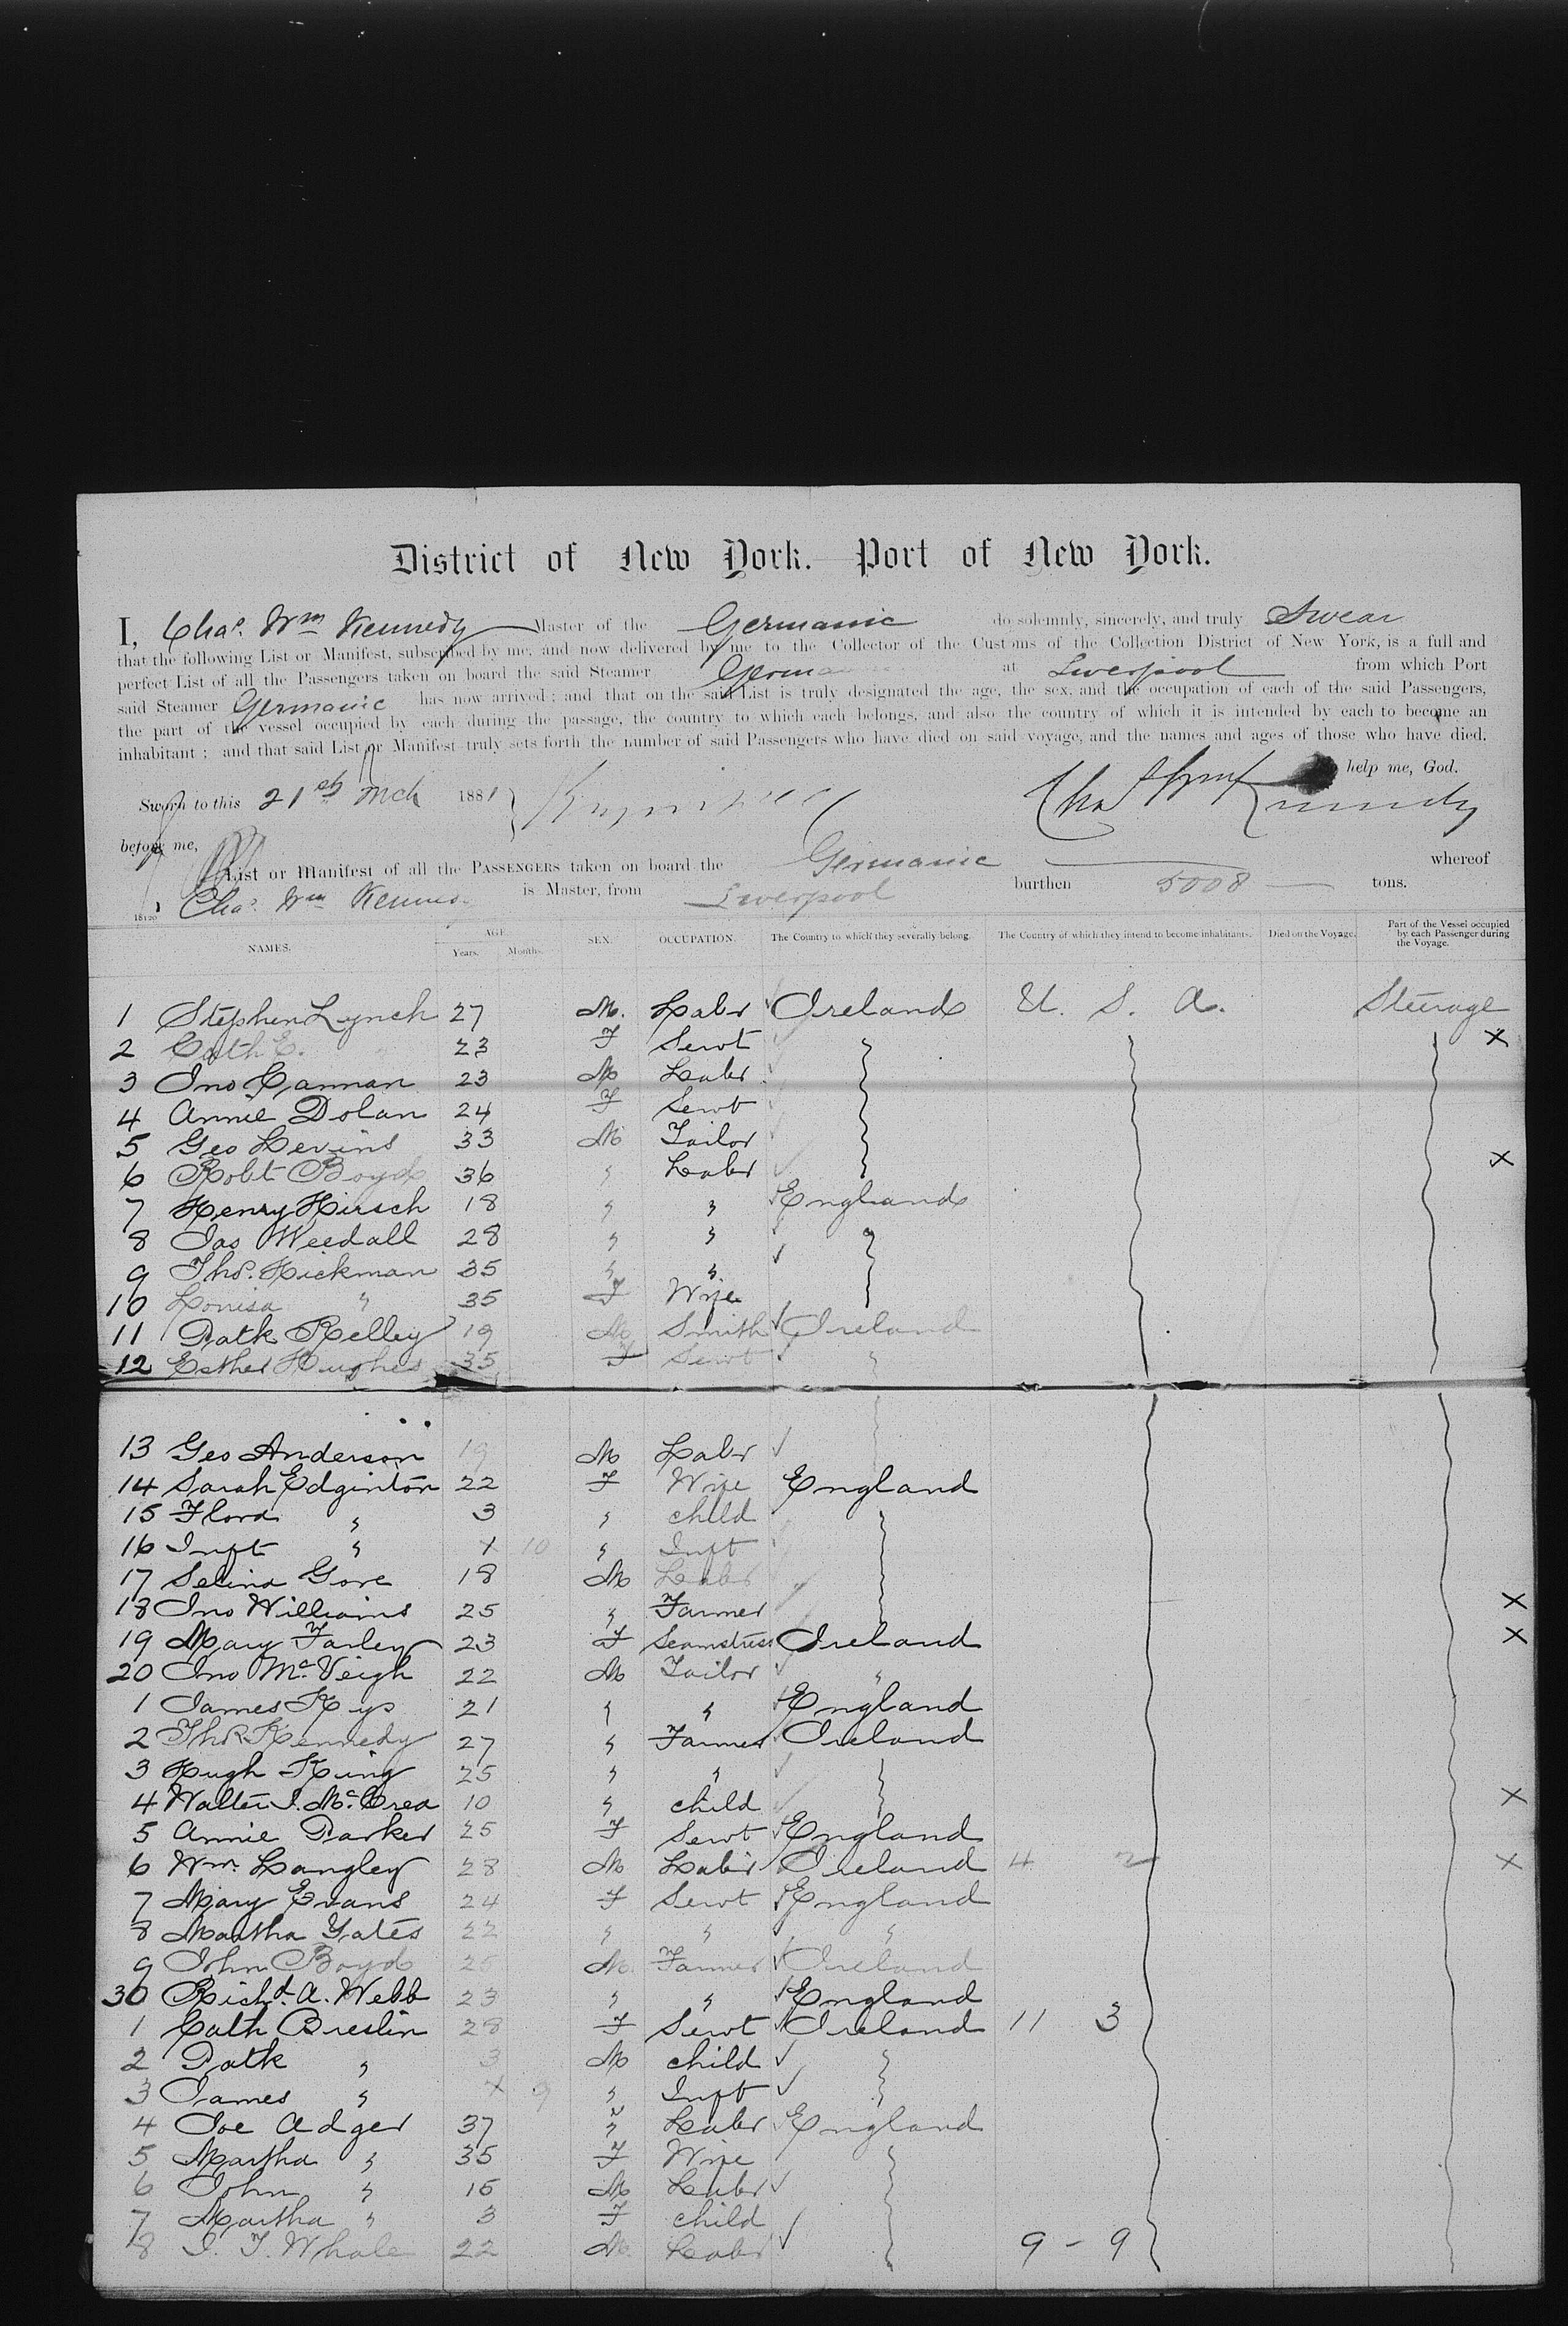 District of New York.—Port of New York.
I, Chas. Wm Kennedy Master of the Germanic do solemnly, sincerely, and truly Swear
that the following List or Manifest, subscribed by me, and now delivered by me to the Collector of the Customs of the Collection District of New York, is a full and
perfect List of all the Passengers taken on board the said Steamer Germa at Liverpool from which Port
said Steamer Germanic has now arrived; and that on the said List is truly designated the age, the sex, and the occupation of each of the said Passengers,
the part of the vessel occupied by each during the passage, the country to which each belongs, and also the country of which it is intended by each to become an
inhabitant; and that said List or Manifest truly sets forth the number of said Passengers who have died on said voyage, and the names and ages of those who have died.
help me, God.
Sworn to this 21st Mch 1881 Chas Wm Kennedy
before me,
List or Manifest of all the PASSENGERS taken on board the Germanic whereof
Chas. Wm Kenne is Master, from Liverpool burthen 5008 tons.
NAMES. AGE. Years. Months. SEX. OCCUPATION. The Country to which they severally belong. The Country of which they intend to become inhabitants. Died on the Voyage. Part of the Vessel occupied by each Passenger during the Voyage.
1 Stephen Lynch 27 M. Labr Ireland U. S. A. Steerage
2 Cath E. " 23 F Servt " X
3 Jno Cannan 23 M Labr
4 Annie Dolan 24 F Servt
5 Geo Levins 33 M Tailor
6 Robt Boyd 36 " Labr X
7 Henry Hirsch 18 " " England
8 Jas Weedall 28 " " "
9 Thos. Hickman 35 " "
10 Louisa " 35 F Wife
11 Patk Kelley 19 M Smith Ireland
12 Esther Hughes 35 F Servt "
13 Geo Anderson 19 M Labr
14 Sarah Edginton 22 F Wife England
15 Flora " 3 " child
16 Inft " X 10 " Inft
17 Selina Gore 18 M Labr
18 Jno Williams 25 " Farmer X
19 Mary Farley 23 F Seamstress Ireland X
20 Jno McVeigh 22 M Tailor "
1 James Kys 21 " " England
2 Thos Kennedy 27 " Farmer Ireland
3 Hugh King 25 " "
4 Walter J. McCrea 10 " child X
5 Annie Parker 25 F Servt England
6 Wm. Langley 28 M Labr Ireland 4 2 X
7 Mary Evans 24 F Servt England
8 Martha Yates 22 " " "
9 John Boyd 26 M. Farmer Ireland
30 Richd. A. Webb 23 " " England
1 Cath Breslin 28 F Servt Ireland 11 3
2 Patk " 3 M child
3 James " X 9 " Inft
4 Joe Adger 37 " Labr England
5 Martha " 35 F Wife
6 John " 16 M Labr
7 Martha " 3 F child
8 J. T. Whale 22 M Labr 9 - 9